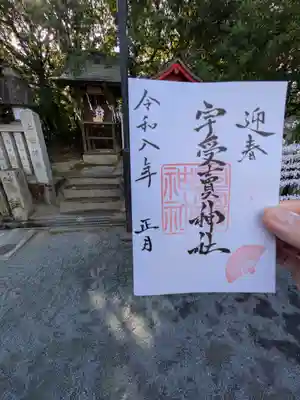 迎春
宇受賣神社
令和八年 正月